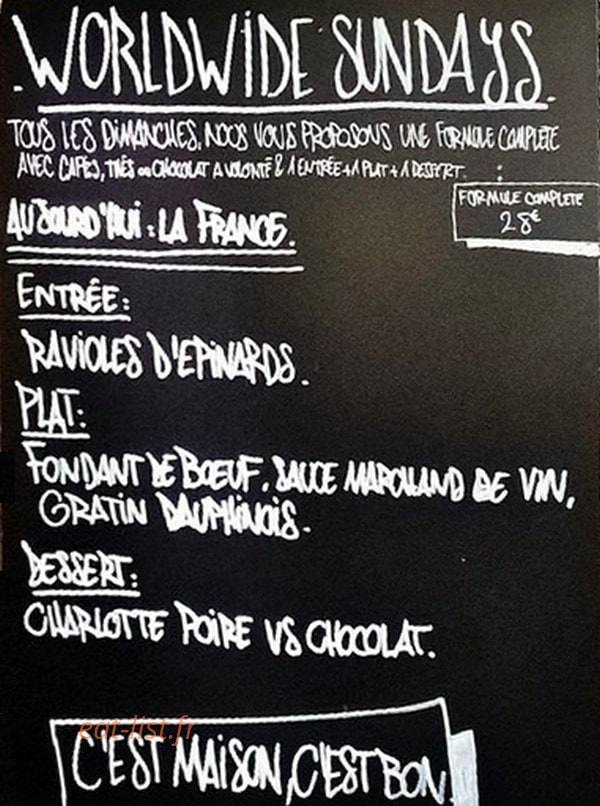 .WORLDWIDE SUNDAYS.
TOUS LES DIMANCHES, NOUS VOUS PROPOSONS UNE FORMULE COMPLETE
AVEC CAFES, THÉS OU CHOCOLAT A VOLONTÉ & 1 ENTRÉE + 1 PLAT + 1 DESSERT.
FORMULE COMPLETE
28€
AUJOURD'HUI : LA FRANCE.
ENTRÉE :
RAVIOLES D'EPINARDS.
PLAT :
FONDANT DE BŒUF, SAUCE MARCHAND DE VIN,
GRATIN DAUPHINOIS.
DESSERT :
CHARLOTTE POIRE VS CHOCOLAT.
eat-list.fr
C'EST MAISON, C'EST BON.